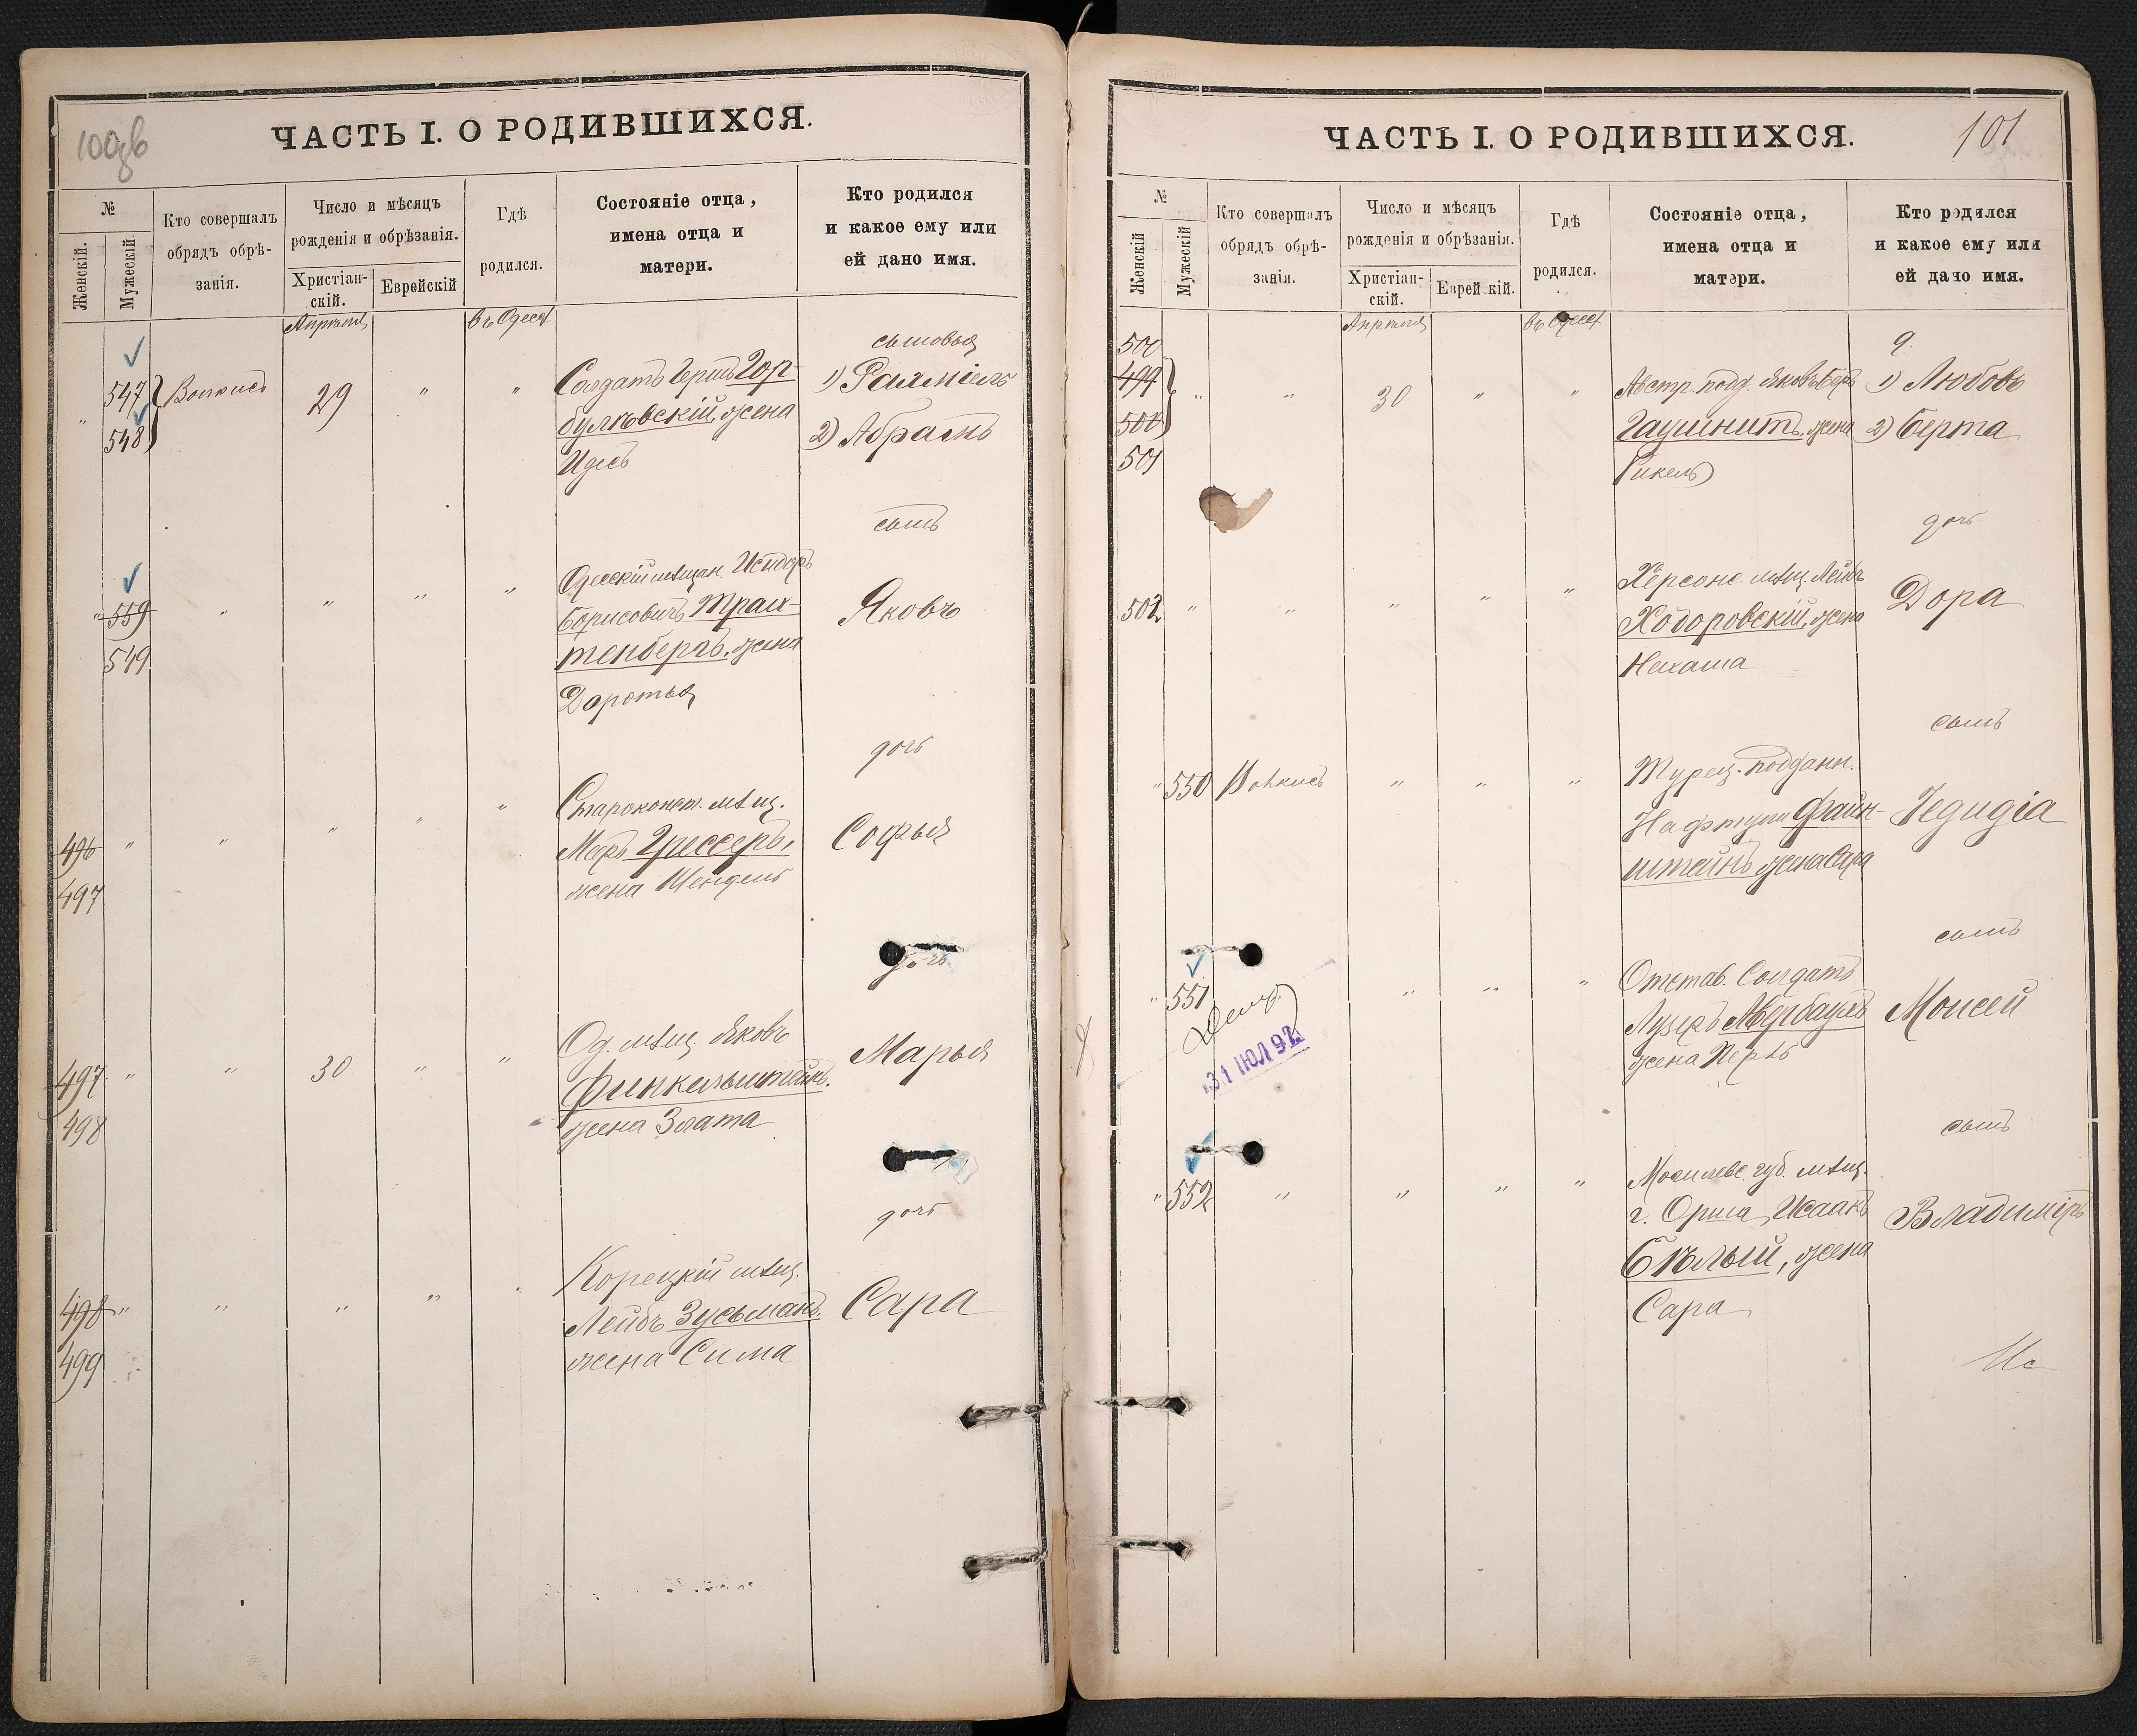 100об
ЧАСТЬ I. О РОДИВШИХСЯ.
№
Женскій.
Мужескій.
Кто совершалъ
обрядъ обрѣ-
занія.
Число и мѣсяцъ
рожденія и обрѣзанія.
Христіан-
скій.
Еврейскій
Гдѣ
родился.
Состояніе отца,
имена отца и
матери.
Кто родился
и какое ему или
ей дано имя.
Апрѣля
въ Одессѣ
сыновья
547
548
29
Солдатъ Гершъ Гор-
булевскій, жена
Идесъ
1)
2) Абрамъ
сынъ
559
549
Одесскій мѣщан. Исидоръ
Борисовичъ Трах-
тенбергъ, жена
Доротья
Яковъ
дочь
496
497
Староконст. мѣщ.
Меръ Грессеръ,
жена Шендель
Софья
дочь
497
498
30
Од. мѣщ. Яковъ
Финкельштейнъ,
жена Злата
Марья
дочь
498
499
Корецкій мѣщ.
Лейбъ Зусьманъ,
жена Сима
Сара
ЧАСТЬ I. О РОДИВШИХСЯ.
101
№
Женскій
Мужескій
Кто совершалъ
обрядъ обрѣ-
занія.
Число и мѣсяцъ
рожденія и обрѣзанія.
Христіан-
скій.
Еврей кій.
Гдѣ
родился.
Состояніе отца,
имена отца и
матери.
Кто родился
и какое ему или
ей дано имя.
Апрѣля
въ Одессѣ
500
499
500
501
30
Австр. подд. Яковъ Беръ
жена
Рикель
1) Любовь
2) Берта
дочь
502
Херсонс. мѣщ. Лейбъ
Ходоровскій, жена
Нехама
Дора
сынъ
550
Турец. подданн.
Нафтули Файн-
штейнъ жена Сара
Іедидія
сынъ
551
31 ЮЛ 92
Отстав. Солдатъ
Лузеръ Авербаухъ
жена Перль
Моисей
сынъ
552
Могилевс. губ. мѣщ.
г. Орша, Исаакъ
Бѣлый, жена
Сара
Владиміръ